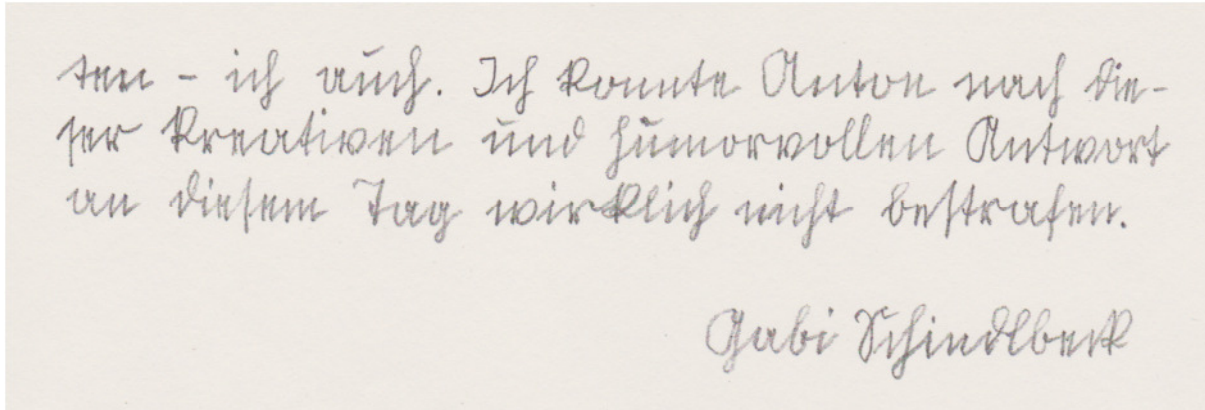 ten - ich auch. Ich konnte Anton nach die-
ser kreativen und humorvollen Antwort
an diesem Tag wirklich nicht bestrafen.
Gabi Schindlbeck